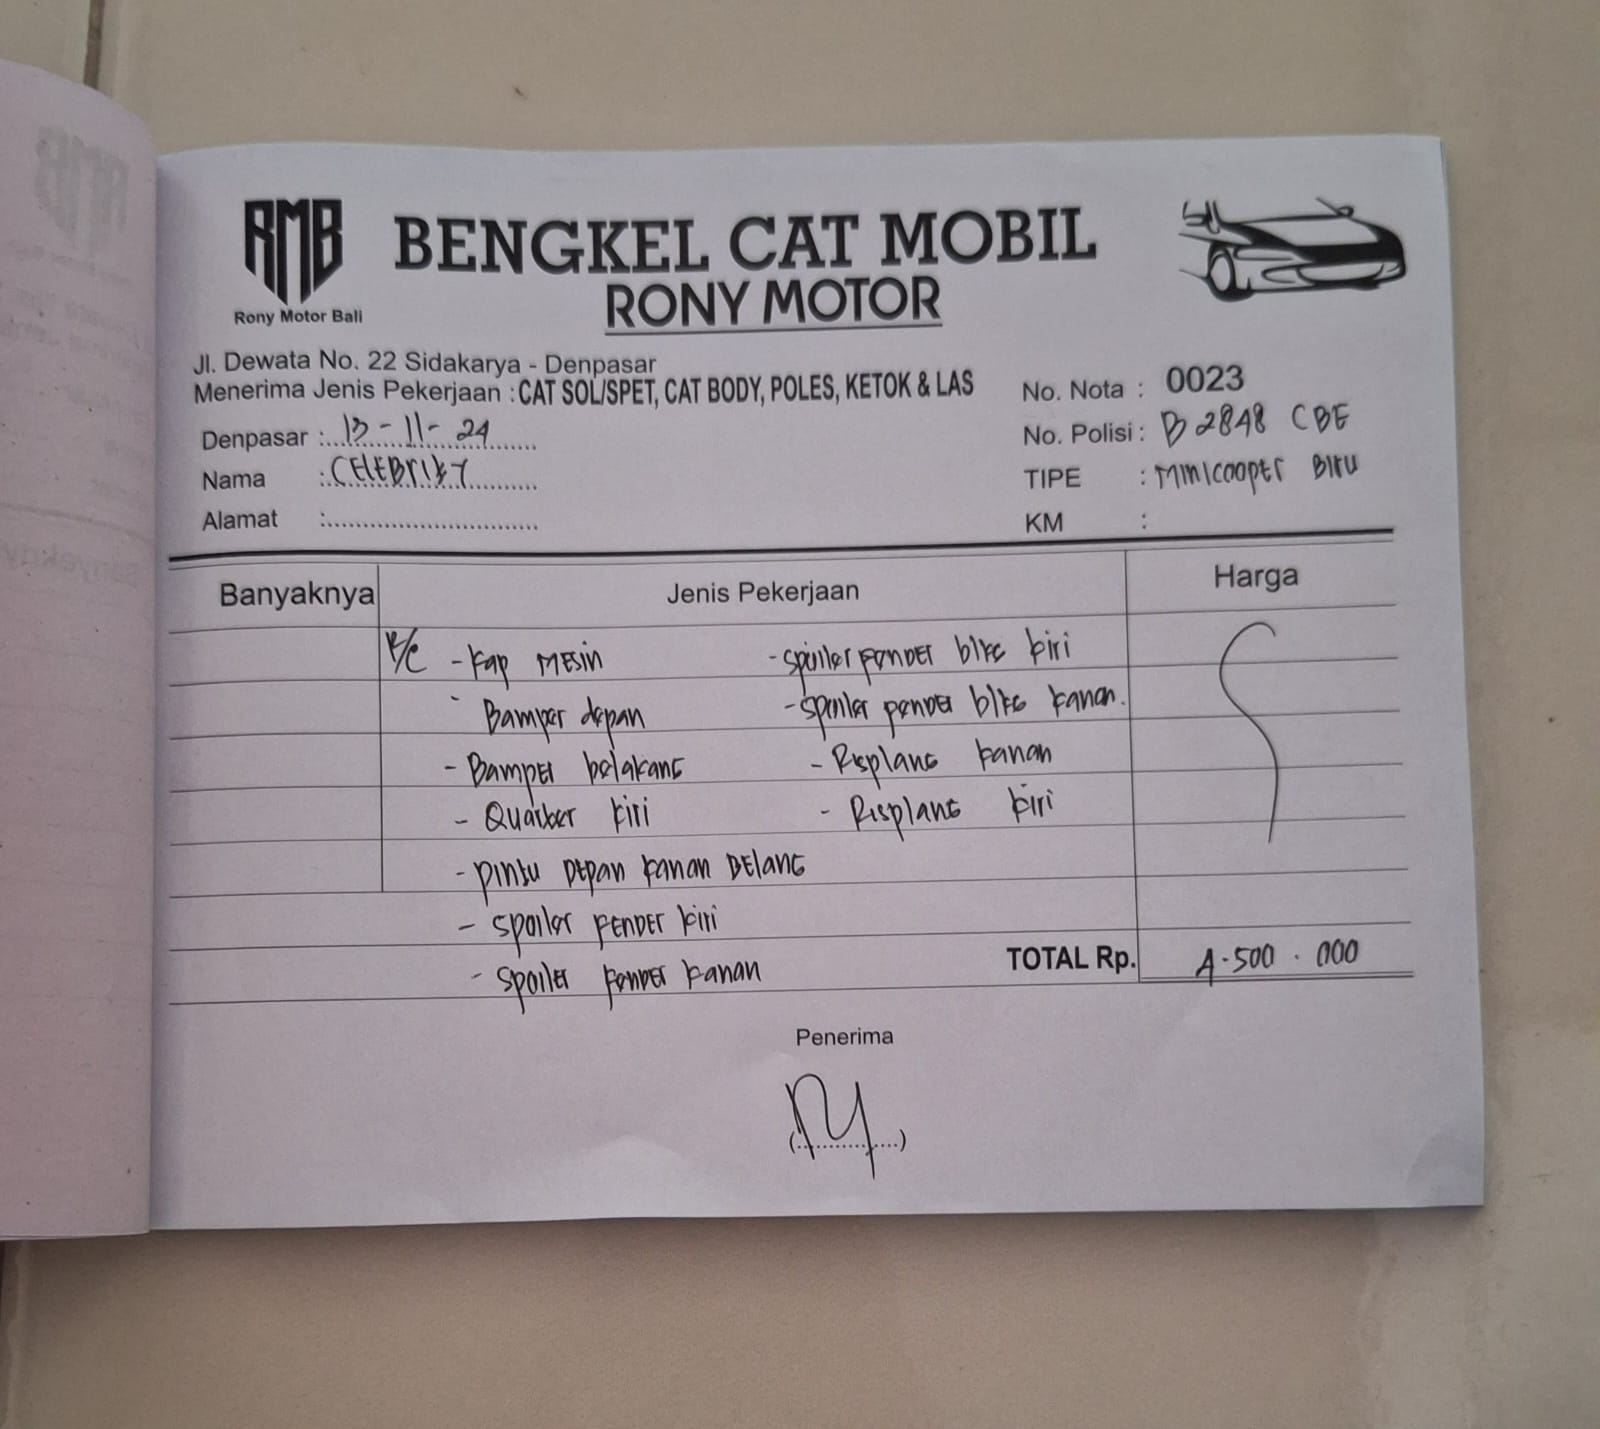 RMB
Rony Motor Bali
BENGKEL CAT MOBIL
RONY MOTOR
Jl. Dewata No. 22 Sidakarya - Denpasar
Menerima Jenis Pekerjaan : CAT SOL/SPET, CAT BODY, POLES, KETOK & LAS
No. Nota : 0023
Denpasar : 13-11-24
No. Polisi : B 2848 CBE
Nama : CELEBRITY
TIPE : Minicooper Biru
Alamat :
KM :
Banyaknya Jenis Pekerjaan Harga
- Kap MESIN - spoiler FENDER blkg kiri
Bamper depan - spoiler FENDER blkg kanan.
- Bamper belakang - Risplang kanan
- kiri - Risplang kiri
- pintu DEPAN kanan BElang
- spoiler FENDER kiri
- spoiler FENDER kanan
TOTAL Rp. 4.500.000
Penerima
(..............)